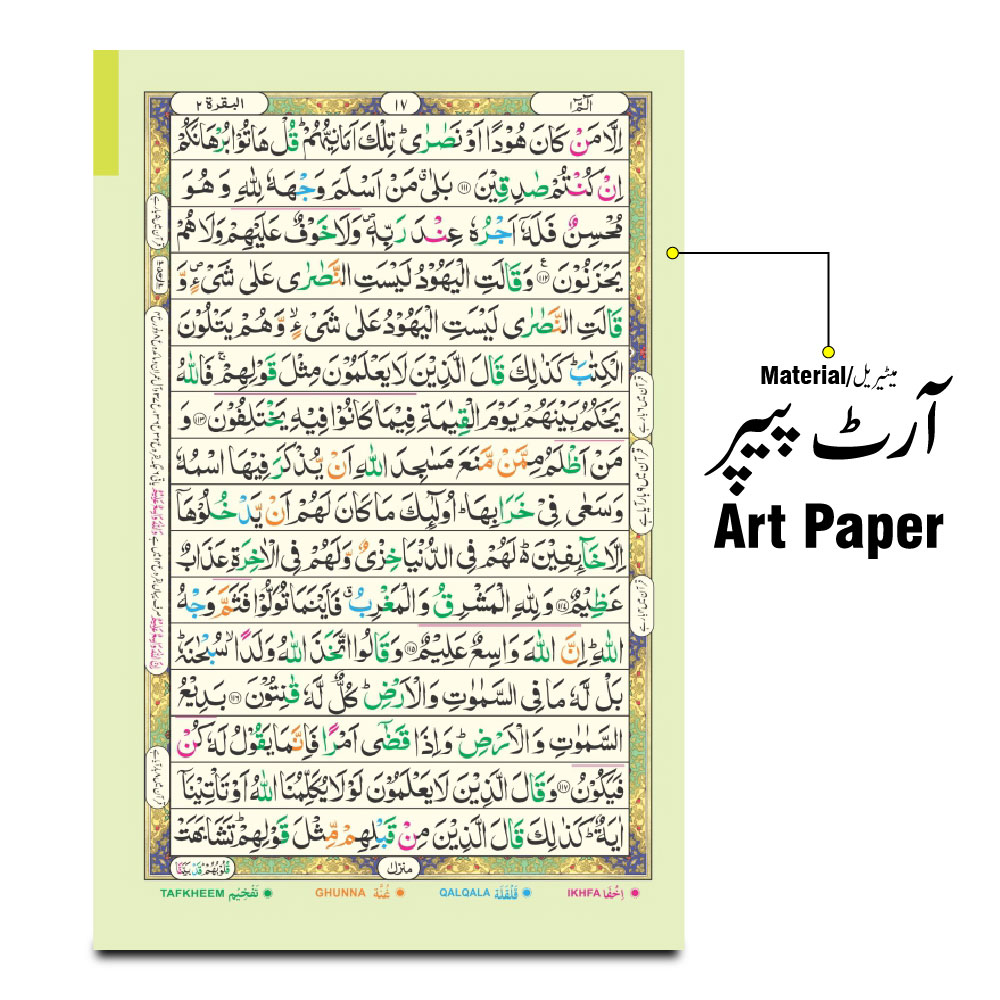 البقرة ٢
١٧
الٓمّٓ ١
اِلَّا مَنْ كَانَ هُوْدًا اَوْ نَصٰرٰى ؕ تِلْكَ اَمَانِيُّهُمْ ؕ قُلْ هَاتُوْا بُرْهَانَكُمْ
اِنْ كُنْتُمْ صٰدِقِيْنَ ۝۱۱۱ بَلٰى ۗ مَنْ اَسْلَمَ وَجْهَهٗ لِلّٰهِ وَ هُوَ
مُحْسِنٌ فَلَهٗۤ اَجْرُهٗ عِنْدَ رَبِّهٖ ۪ وَلَا خَوْفٌ عَلَيْهِمْ وَلَا هُمْ
يَحْزَنُوْنَ ۝۱۱۲ وَقَالَتِ الْيَهُوْدُ لَيْسَتِ النَّصٰرٰى عَلٰى شَىْءٍ ۪ وَّ
قَالَتِ النَّصٰرٰى لَيْسَتِ الْيَهُوْدُ عَلٰى شَىْءٍ ۙ وَّهُمْ يَتْلُوْنَ
الْكِتٰبَ ؕ كَذٰلِكَ قَالَ الَّذِيْنَ لَا يَعْلَمُوْنَ مِثْلَ قَوْلِهِمْ ۚ فَاللّٰهُ
يَحْكُمُ بَيْنَهُمْ يَوْمَ الْقِيٰمَةِ فِيْمَا كَانُوْا فِيْهِ يَخْتَلِفُوْنَ ۝۱۱۳ وَ
مَنْ اَظْلَمُ مِمَّنْ مَّنَعَ مَسٰجِدَ اللّٰهِ اَنْ يُّذْكَرَ فِيْهَا اسْمُهٗ
وَسَعٰى فِىْ خَرَابِهَا ؕ اُولٰٓئِكَ مَا كَانَ لَهُمْ اَنْ يَّدْخُلُوْهَاۤ
اِلَّا خَآئِفِيْنَ ؕ لَهُمْ فِى الدُّنْيَا خِزْىٌ وَّلَهُمْ فِى الْاٰخِرَةِ عَذَابٌ
عَظِيْمٌ ۝۱۱۴ وَلِلّٰهِ الْمَشْرِقُ وَالْمَغْرِبُ ۗ فَاَيْنَمَا تُوَلُّوْا فَثَمَّ وَجْهُ
اللّٰهِ ؕ اِنَّ اللّٰهَ وَاسِعٌ عَلِيْمٌ ۝۱۱۵ وَقَالُوا اتَّخَذَ اللّٰهُ وَلَدًا ۙ سُبْحٰنَهٗ ؕ
بَلْ لَّهٗ مَا فِى السَّمٰوٰتِ وَالْاَرْضِ ؕ كُلٌّ لَّهٗ قٰنِتُوْنَ ۝۱۱۶ بَدِيْعُ
السَّمٰوٰتِ وَالْاَرْضِ ؕ وَاِذَا قَضٰۤى اَمْرًا فَاِنَّمَا يَقُوْلُ لَهٗ كُنْ
فَيَكُوْنُ ۝۱۱۷ وَقَالَ الَّذِيْنَ لَا يَعْلَمُوْنَ لَوْلَا يُكَلِّمُنَا اللّٰهُ اَوْ تَاْتِيْنَاۤ
اٰيَةٌ ؕ كَذٰلِكَ قَالَ الَّذِيْنَ مِنْ قَبْلِهِمْ مِّثْلَ قَوْلِهِمْ ؕ تَشَابَهَتْ
منزل ١
قُلُوْبُهُمْ ؕ قَدْ بَيَّنَّا
TAFKHEEM تَفْخِيْم
GHUNNA غُنَّة
QALQALA قَلْقَلَة
IKHFA اِخْفَا
Material/میٹیریل
آرٹ پیپر
Art Paper